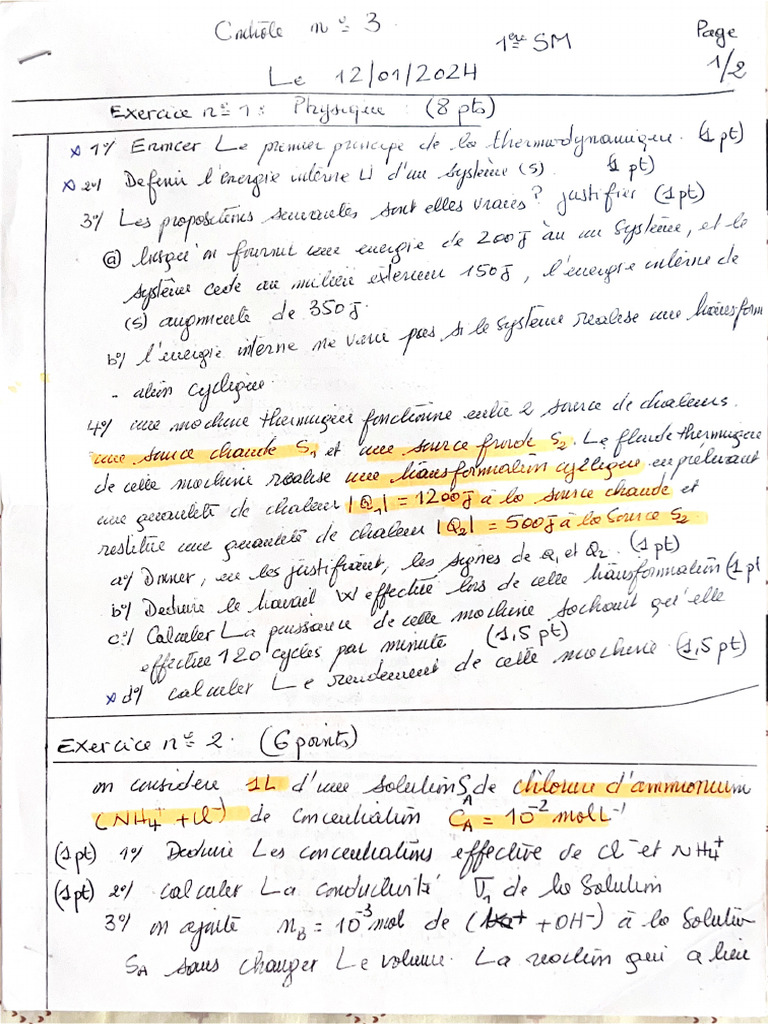 Contrôle n° 3
1ère SM
Page
1/2
Le 12/01/2024
Exercice n° 1 : Physique : (8 pts)
1°/ Enoncer Le premier principe de la thermodynamique. (1 pt)
2°/ Definir l'énergie interne U d'un système (S). (1 pt)
3°/ Les propositions suivantes sont elles vraies? justifier (1pt)
ⓐ lorsqu'on fournit une energie de 200J à un système, et le
système cede au milieu exterieur 150J, l'énergie interne de
(S) augmente de 350J.
b°/ l'énergie interne ne varie pas si le système realise une transform
-ation cyclique.
4°/ une machine thermique fonctionne entre 2 source de chaleurs.
une source chaude S1 et une source froide S2. Le fluide thermique
de cette machine réalise une transformation cyclique en prélevant
une quantité de chaleur |Q1| = 1200J à la source chaude et
restitue une quantité de chaleur |Q2| = 500J à la source S2
a°/ Donner, en les justifiant, les signes de Q1 et Q2. (1pt)
b°/ Deduire le travail W effectué lors de cette transformation (1pt
c°/ Calculer La puissance de cette machine sachant qu'elle
effectue 120 cycles par minute (1,5 pt)
d°/ calculer Le rendement de cette machine (1,5pt)
Exercice n° 2. (6 points)
on considère 1L d'une solution SA de chlorure d'ammonium
(NH4+ + Cl-) de concentration CA = 10-2 mol L-1
(1pt) 1°/ Deduire Les concentrations effective de Cl- et NH4+
(1pt) 2°/ calculer La conductivité σ1 de la solution
3°/ on ajoute nB = 10-3 mol de ( + OH-) à la solution
SA sans changer Le volume. La reaction qui a lieu